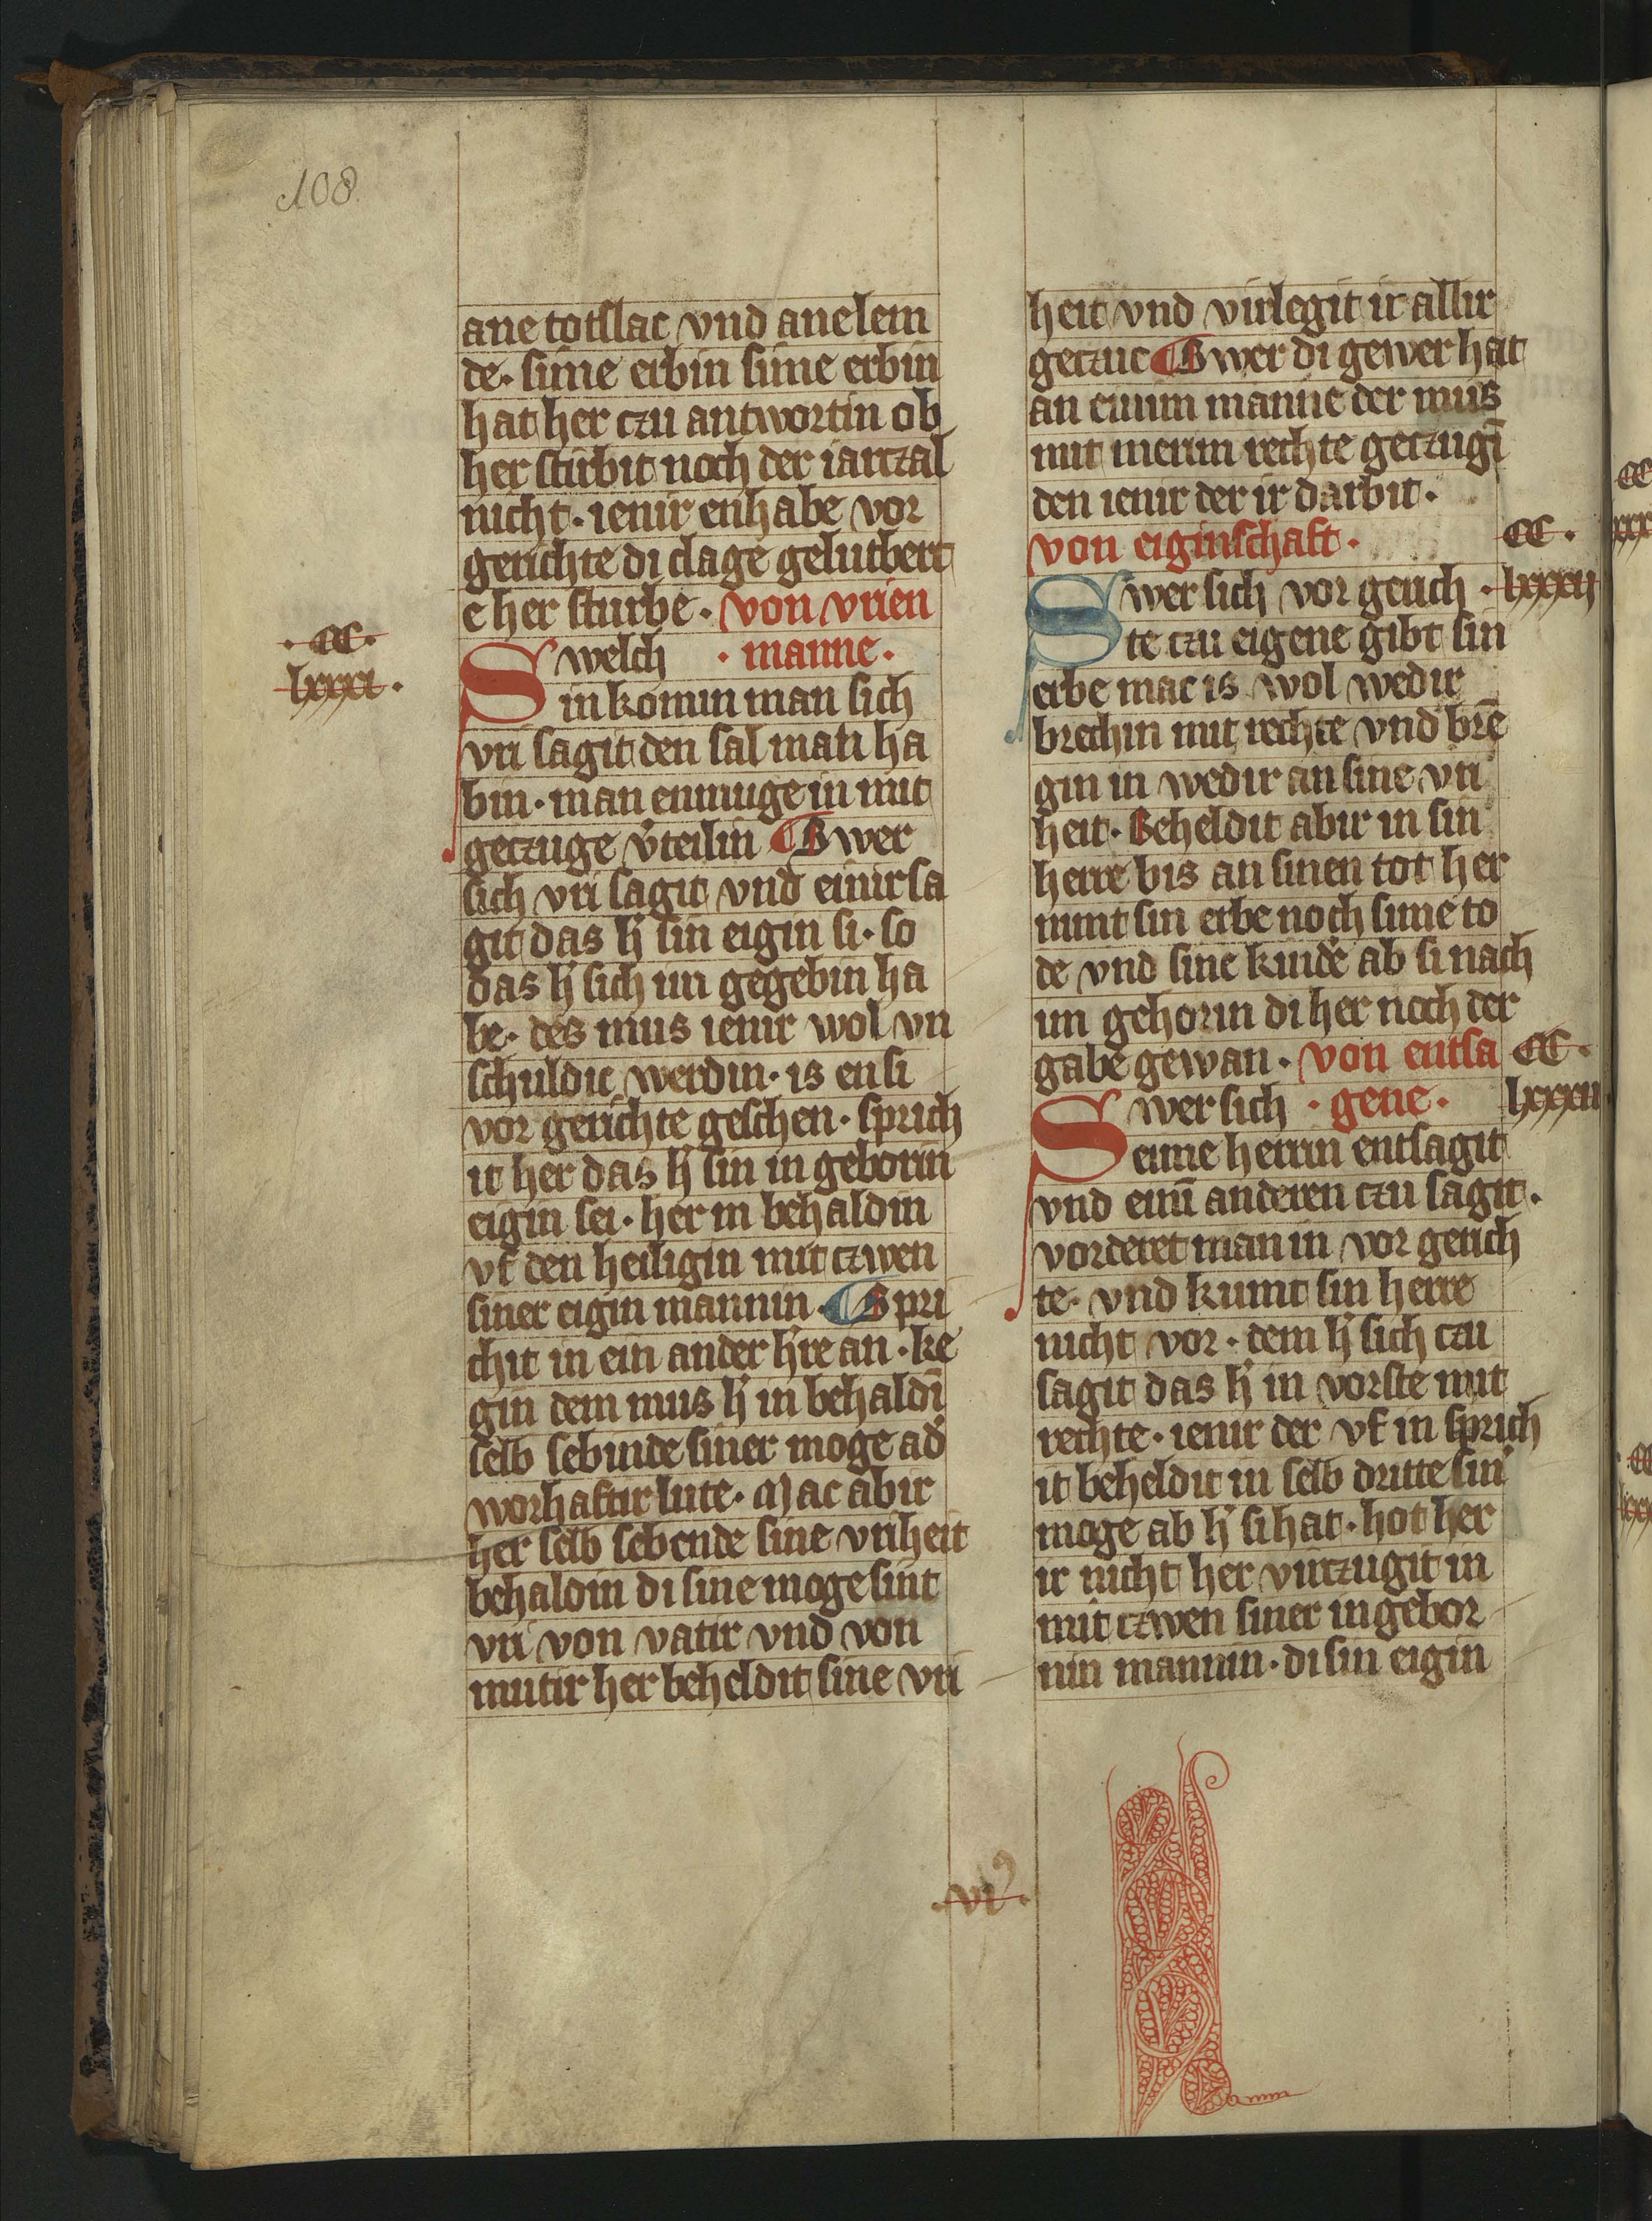 108
ane totslac vnd ane lem
de· sime erbin sime erbin
hat her czu antwortin ob
her stirbit noch der iarczal
nicht· ienir enhabe vor
gerichte di clage gelutbert
e her sturbe· von vrien
Swelch · manne·
· CC·
in komin man sich
lxxxi·
vri sagit den sal man ha
bin· man enmuge in mit
geczuge v̓teilin ¶ Swer
sich vri sagit vnd einir sa
git das h̓ sin eigin si· so
das h̓ sich im gegebin ha
be· des mus ienir wol vn
schuldic werdin· is en si
vor gerichte geschen· sprich
it her das h̓ sin in geborin
eigin sei· her in behaldin
vf den heiligin mit czwen
siner eigin mannin· ¶ Spri
chit in ein ander h̓re an· ke
gin dem mus h̓ in behaldī
selb sebinde siner moge ad̓
worhaftir lute· Mac abir
her selb sebende sine vriheit
behaldin di sine moge sint
vri von vatir vnd von
mutir her beheldit sine vri
heit vnd virlegit ir allir
geczuc ¶ Swer di gewer hat
an einim manne der mus
mit merim rechte geczugī
den ienir der ir darbit·
von eiginschaft· CC·
Swer sich vor gerich · lxxxii
te czu eigene gibt sin
erbe mac is wol wedir
brechin mit rechte vnd brē
gin in wedir an sine vri
heit· Beheldit abir in sin
herre bis an sinen tot her
nimt sin erbe noch sime to
de vnd sine kinde̓ ab si nach
im gehorin di her noch der
gabe gewan· von entsa CC·
Swer sich · gene· lxxxiii
eime herrin entsagit
vnd einī anderen czu sagit·
vorderet man in vor gerich
te· vnd kumt sin herre
nicht vor· dem h̓ sich czu
sagit das h̓ in vorste mit
rechte· ienir der vf in sprich
it beheldit in selb dritte sin̓
moge ab h̓ si hat· hot her
ir nicht her virczugit in
mit czwen siner in gebor
nin mannin· di sin eigin
·vi⁹·